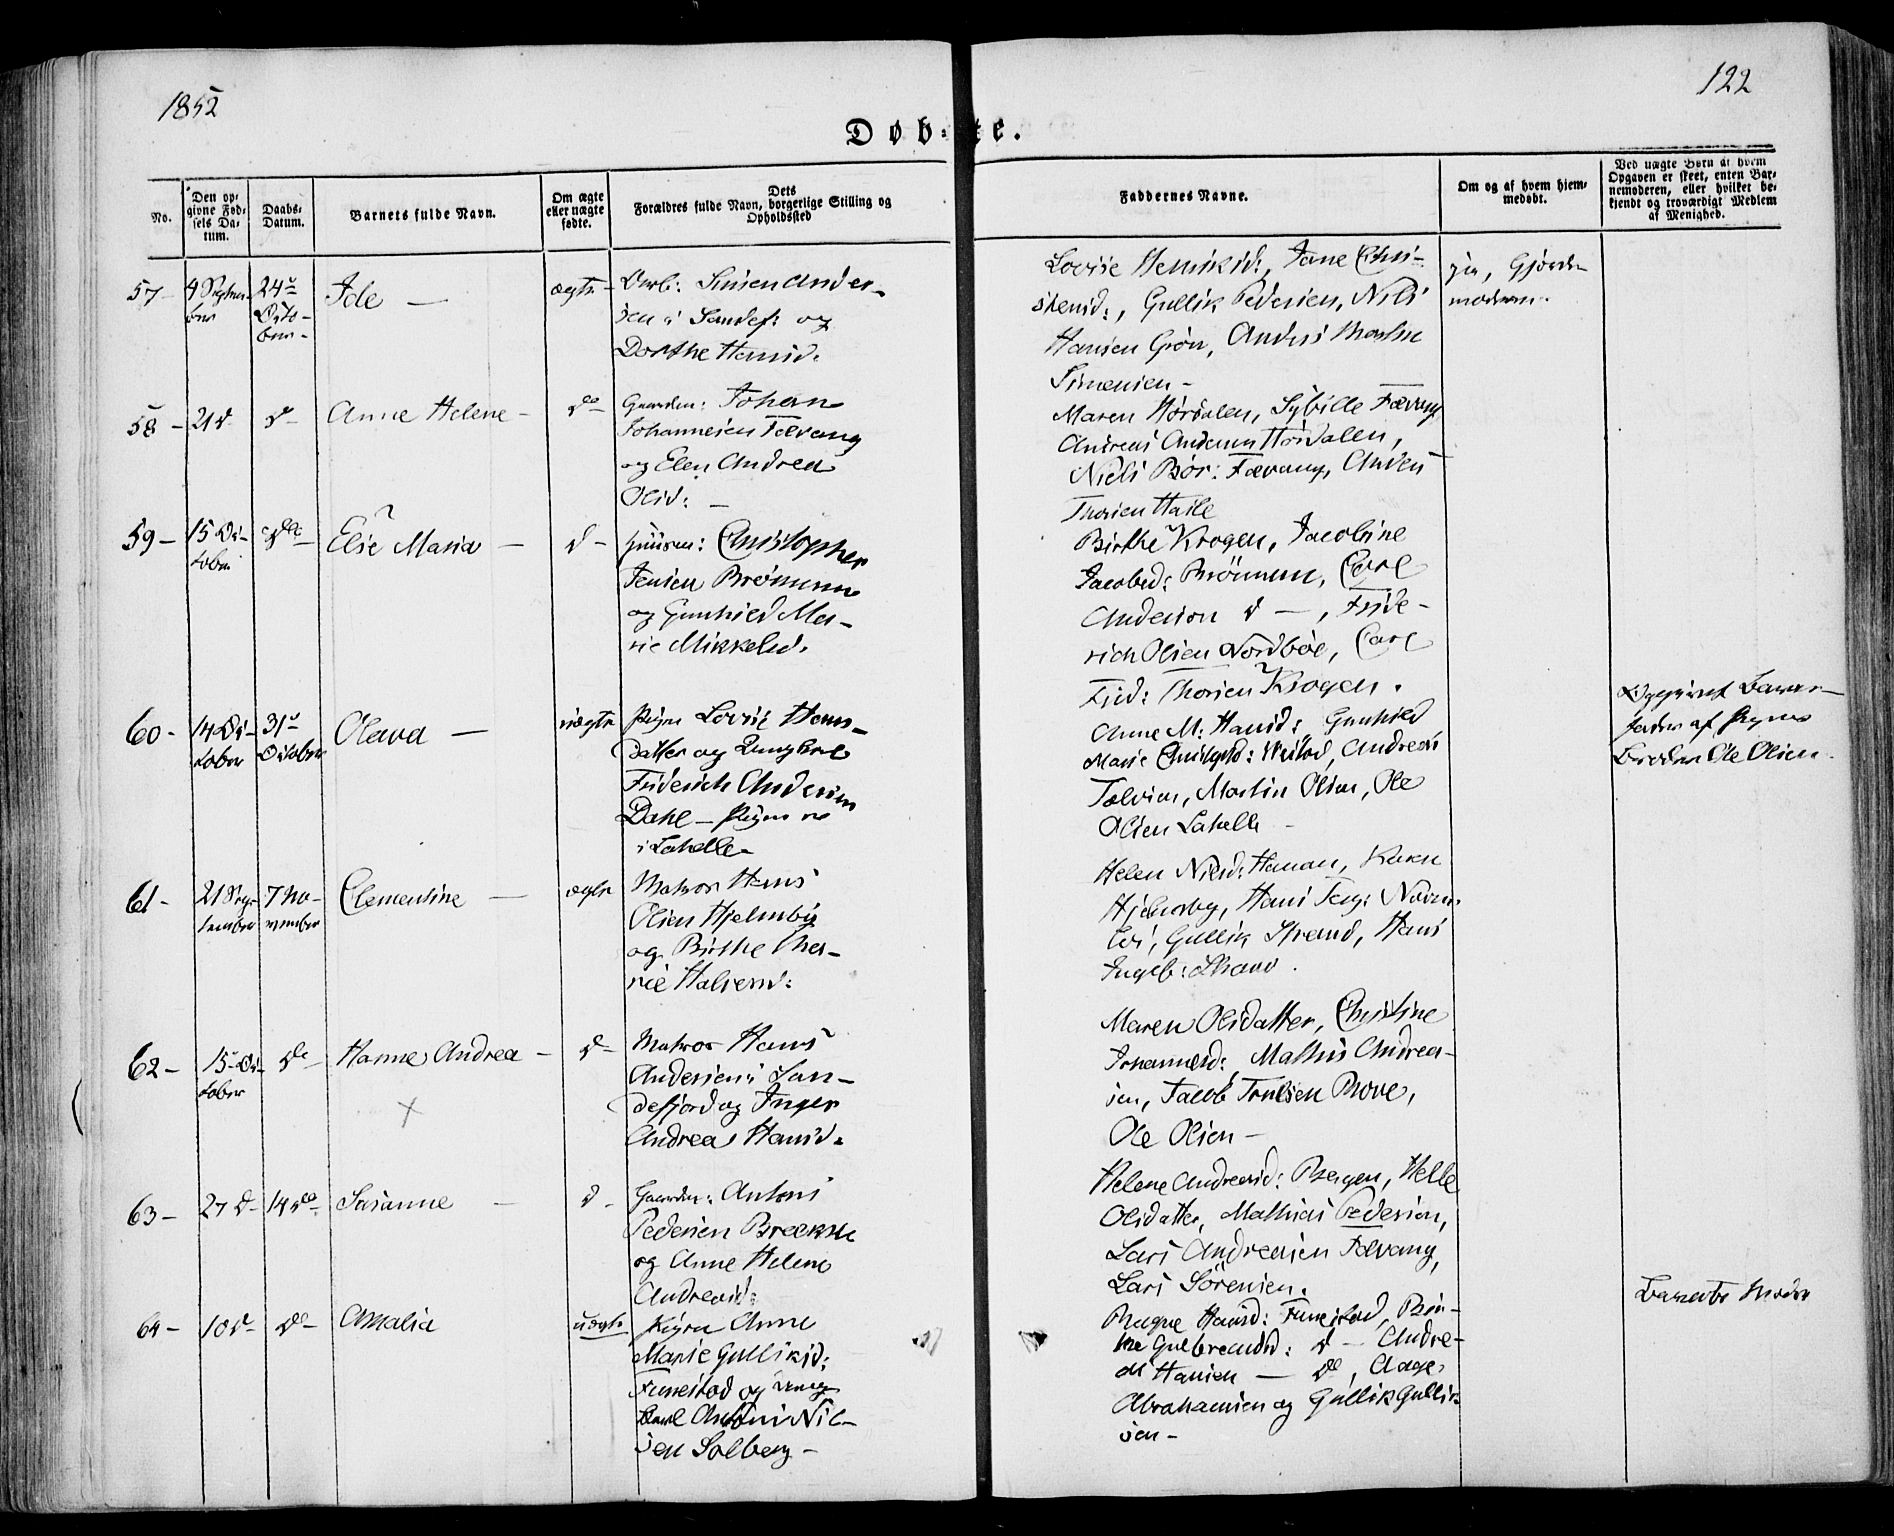 1852
122
Døb-te.
No.
Den op-
givne Fød-
sels Da-
tum.
Daabs-
Datum.
Barnets fulde Navn.
Om ægte
eller uægte
fødte.
Dets
Forældres fulde Navn, borgerlige Stilling og
Opholdssted
Faddernes Navne.
Om og af hvem hjem-
medøbt.
Ved uægte Børn af hvem
Opgaven er skeet, enten Bar-
nemoderen, eller hvilket be-
kjendt og troværdigt Medlem
af Menighed.
57-
4 Septem-
ber
24de
Octo-
ber-
Ide —
ægte-
Simen Ander-
sen i Sandef: og
Dorthe Hansd.
Lovise Henriksd:, Jane Chri-
stensd:, Gullik Pedersen, Nils
Hansen Grön, Anders
Simensen -
ja, Gjorde-
moderen.
58 -
21 d-
do-
Anne Helene -
do-
Gaardm: Johan
Johannesen Fævang
og Elen Andrea
Olsd: —
Maren Hörsdalen, Sybille Fævang
Andreas Andersen Hörsdalen,
Niels Bör: Fævang, Anders
Thorsen Hasle
59 -
15 Oc-
tober
do-
Else Maria —
d-
Huusm: Christopher
Jensen Brömmen
og Gunhild Ma-
rie Mikkelsd.
Birthe Krogen, Jacobine
Jacobsd: Brömmen, Carl
Anderson d —, Fride-
rich Olsen Nordböe, Carl
Frid: Thorsen Krogen.
60 -
14 Oc-
tober
31te
October
Olava —
uægte
Pigen Lovise Hans-
datter og Ungkarl
Friderich Andersen
Dahl — Pigen er
i Lahelle-
Anne M: Hansd: Gunhild
Marie Andreas
Martin Olsen, Ole
Olsen Lahelle -
Opgivet Barne-
fader af Pigens
Broder Ole Olsen.
61 -
21 Sep-
tember
7 No-
vember
Clementine —
ægte
Matros Hans
Olsen Hjelmby
og Birthe Ma-
rie Halvorsd:
Helen Nilsd: Karen
Hans
Gullik Strand, Hans
Ingeb: Strand.
62 -
15 Oc-
tober
do-
Hanne Andrea -
d-
Matros Hans
Andersen i San-
defjord og Inger
Andrea Hansd.
Maren Olsdatter, Christine
Johannesd: Mathis Andrea-
sen, Jacob Trulsen Prove,
Ole Olsen -
63 -
27 d-
14 do-
Susanne —
d-
Gaardm: Antoni
Pedersen Brekke
og Anne Helene
Andreasd:
Helene Andreasd: Bergen, Helle
Olsdatter, Mathias Pedersen,
Lars Andreasen Fævang,
Lars Sörensen.
64 -
10 d-
do-
Amalia
uægte
Pigen Anne
Marie Gulliksd:
Furustad og Ung-
karl Antoni Nil-
sen Solberg -
Hansd: Furustad,
Gulbrandsd: d — Andre-
as Hansen — do, Aage
Abrahamsen og Gullik Gullik-
sen -
Barnets Moder